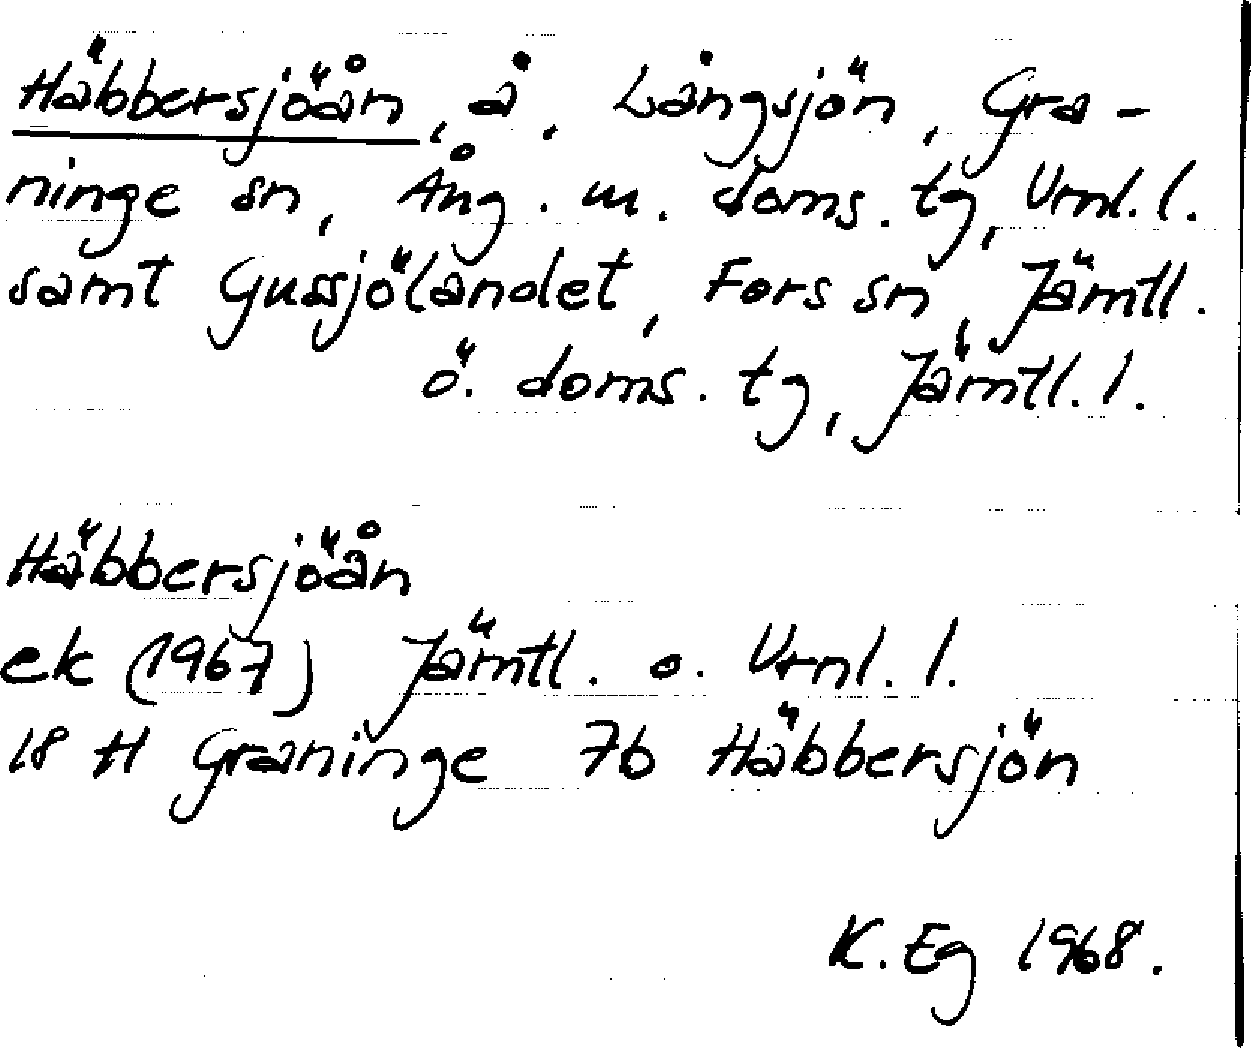 Häbbersjöån, å. Långsjön, Gra-
ninge sn, Ång. m. doms. tg, Vrnl. l.
samt Gussjölandet, Fors sn, Jämtl.
ö. doms. tg, Jämtl. l.
Häbbersjöån
ek (1967) Jämtl. o. Vrnl. l.
18 H Graninge 7b Häbbersjön
K. Eg 1968.